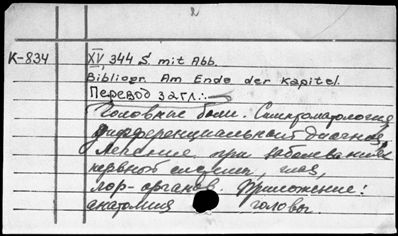 2
K-834 XV, 344 S. mit Abb.
Bibliogr. Am Ende der Kapitel.
Перевод загл.:
Головные боли. Симптоматология
дифференциальный диагноз,
лечение при заболеваниях
нервной системы, глаз,
лор-органов. Приложение:
анатомия головы